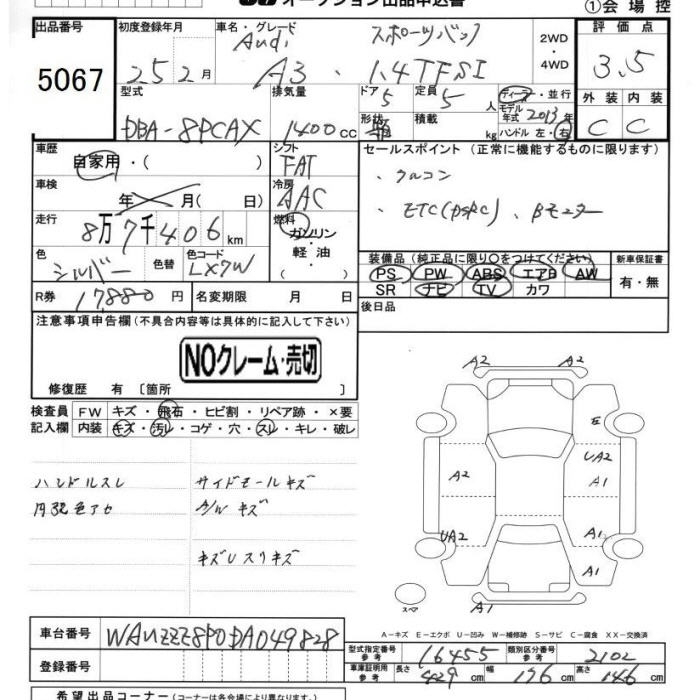 オークション出品申込書 ①会場控
出品番号 初度登録年月 車名・グレード 評価点
5067 25 2月 Audi スポーツバック 2WD・4WD 3.5
A3 . 1.4TFSI
型式 排気量 ドア 5 定員 5人 ディーラー・並行 外装 内装
DBA-8PCAX 1400cc 形状 積載 kg モデル年式 2013年 C C
ハンドル 左・右
車歴 シフト セールスポイント (正常に機能するものに限ります)
自家用・( ) FAT 、クルコン
車検 年 月(日) 冷房 AAC 、ETC(DSRC)、Bモニター
走行 8万7千406km 燃料 ガソリン・軽油( )
色 シルバー 色替 色コード LX7W 装備品 (純正品に限り〇をつけてください) 新車保証書
PS PW ABS エアB AW 有・無
SR ナビ TV カワ
R券 17880円 名変期限 月 日 後日品
注意事項申告欄 (不具合内容等は具体的に記入して下さい)
NOクレーム・売切
修復歴 有 [箇所 ]
検査員 FW キズ・飛石・ヒビ割・リペア跡・×要
記入欄 内装 キズ・汚レ・コゲ・穴・スレ・キレ・破レ
ハンドルスレ サイドモールキズ
内装色アセ A/Wキズ
キズUスリキズ
A2 A2
E
UA2
A2 A1
UA2 A1
A1
スペア A1
A－キズ E－エクボ U－凹み W－補修跡 S－サビ C－腐食 XX－交換済
車台番号 WAUZZZ8P0DA049828
型式指定番号 参考 16455 類別区分番号 参考 2102
登録番号 車庫証明用 参考 長さ 429cm 幅 176cm 高さ 146cm
希望出品コーナー (コーナーは各会場により異なります)